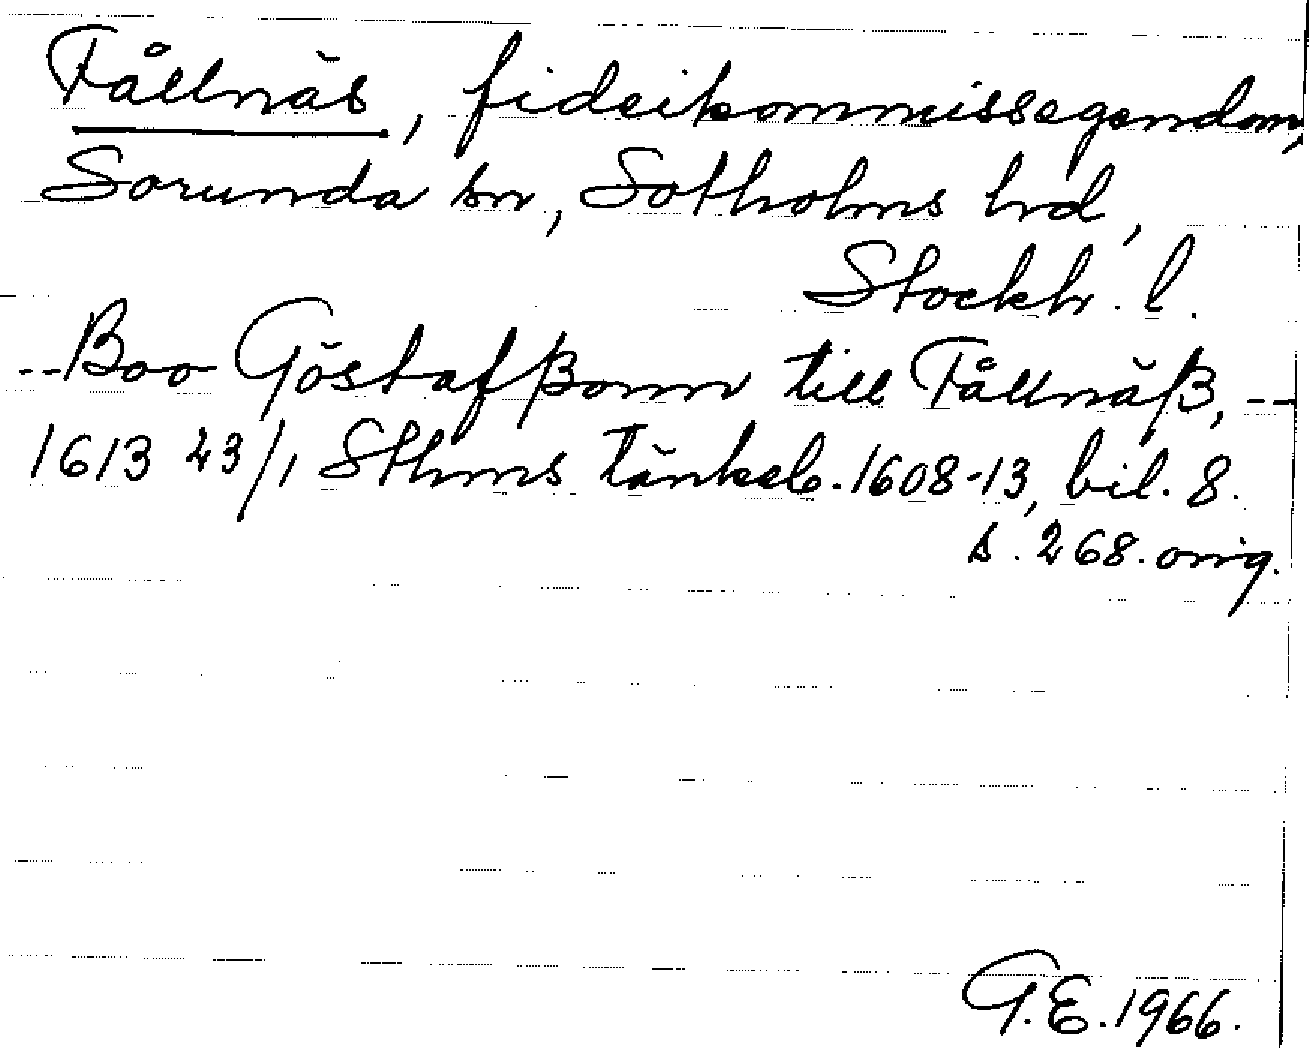 Fållnäs, fideikommissegendom,
Sorunda sn, Sotholms hrd,
Stockh. l.
--Boo Göstafßonn till Fållnäß, --
1613 23/1 Sthms tänkeb. 1608-13, bil. 8.
s. 268. orig.
G.E. 1966.